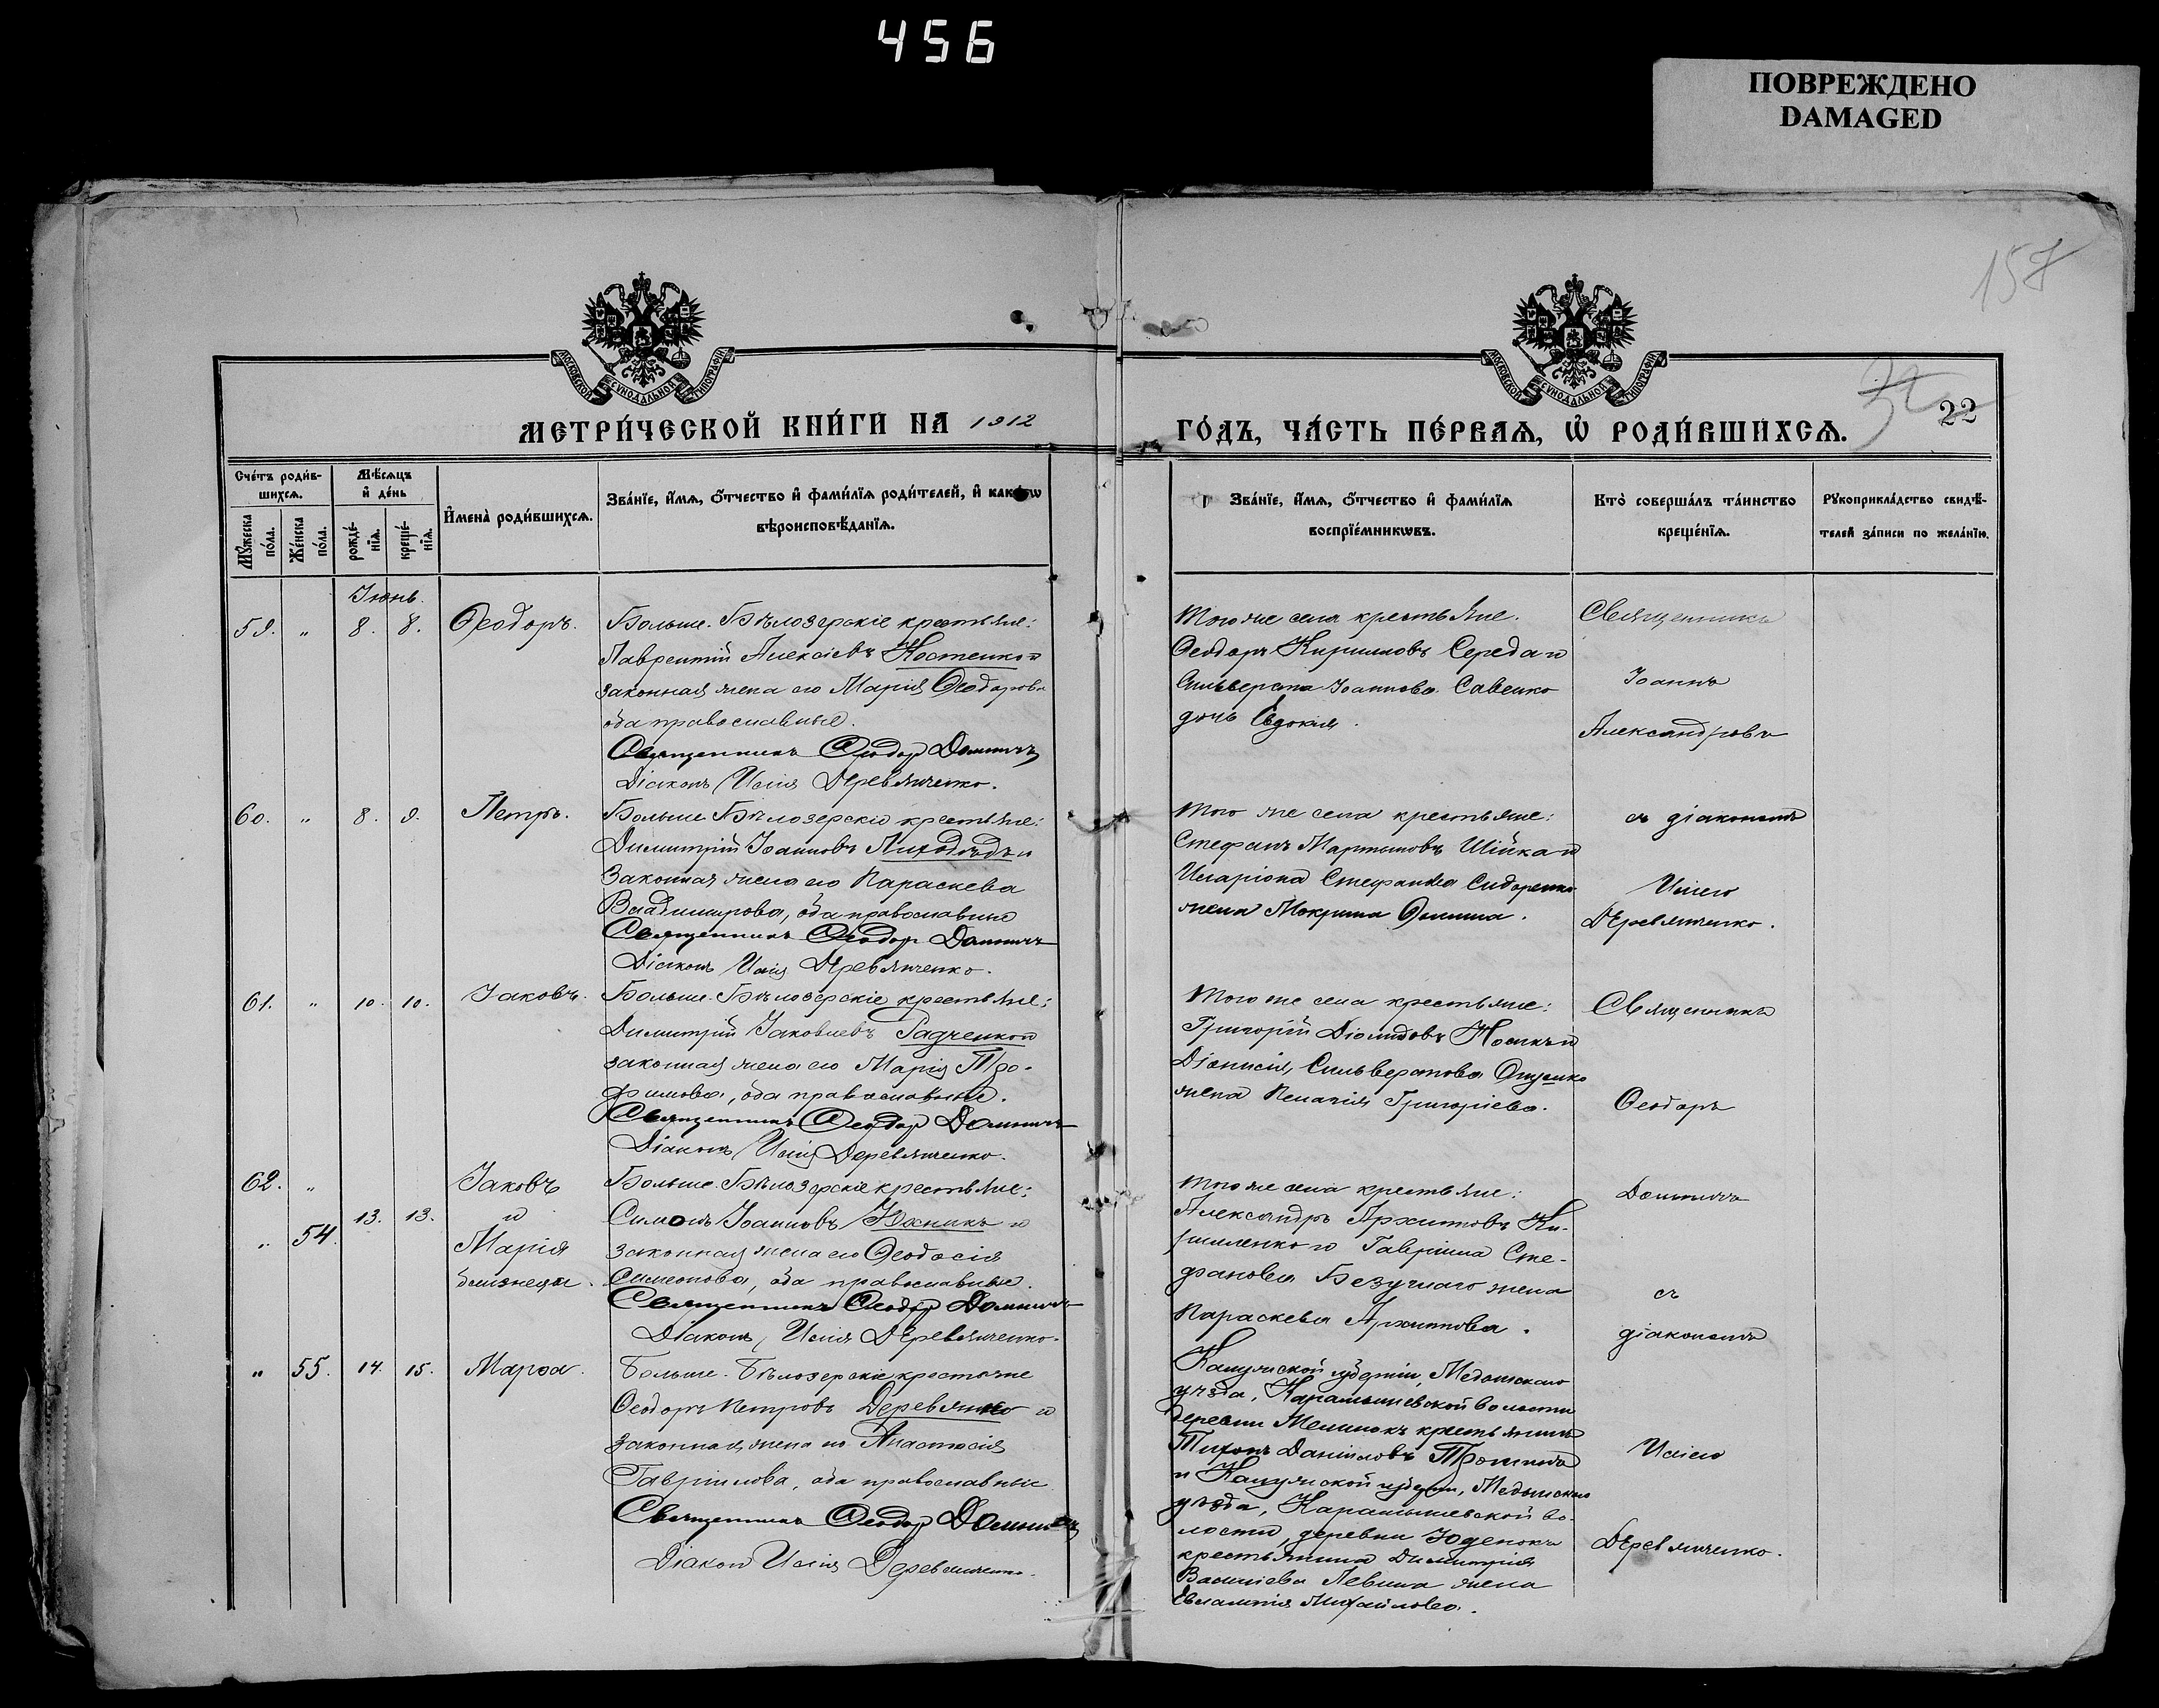 456
ПОВРЕЖДЕНО
DAMAGED
157
МОСКОВСКОЙ СѴНОДАЛЬНОЙ ТИПОГРАФІИ
МОСКОВСКОЙ СѴНОДАЛЬНОЙ ТИПОГРАФІИ
МЕТРИ́ЧЕСКОЙ КНИ́ГИ НА 1912
ГО́ДЪ, ЧА́СТЬ ПЕ́РВАѦ, Ѽ РОДИ́ВШИХСѦ.
22
Сче́тъ роди́в-
шихсѧ.
Мѣ́сѧцъ
и҆ де́нь
Мꙋ́жеска по́ла.
Же́нска по́ла.
рожде́-
нїѧ.
креще́-
нїѧ.
И҆мена̀ роди́вшихсѧ.
Зва́нїе, и҆́мѧ, ѻ҆́тчество и҆ фами́лїѧ роди́телей, и҆ како́гѡ
вѣроисповѣ́данїѧ.
Зва́нїе, и҆́мѧ, ѻ҆́тчество и҆ фами́лїѧ
воспрїе́мникѡвъ.
Кто̀ соверша́лъ та́инство
креще́нїѧ.
Рꙋкоприкла́дство свидѣ́-
телей за́писи по жела́нїю.
Іюнь.
59. " 8. 8. Ѳеодоръ.
Больше-Бѣлозерскіе крестьяне:
Лаврентій Алексіевъ Костенко и
законная жена его Марія Ѳеодорова
оба православные.
Священникъ Ѳеодор Домничъ
Діаконъ Исаія Деревянченко.
Того же села крестьяне.
Ѳеодоръ Кирилловъ Середа и
Сильверста Іоаннова Савенко
дочь Евдокія.
Священникъ
Іоаннъ
Александровъ
60. " 8. 9. Петръ.
Больше-Бѣлозерскіе крестьяне:
Димитрій Іоанновъ Лиходѣдъ и
законная жена его Параскева
Владимірова, оба православные
Священникъ Ѳеодор Домничъ
Діаконъ Исаія Деревянченко.
Того же села крестьяне:
Стефанъ Мартыновъ Шійка и
Иларіона Стефанова Сидоренко
жена Мокрина Ѳомина.
съ діакономъ
Исаіею
Деревянченко.
61. " 10. 10. Іаковъ.
Больше-Бѣлозерскіе крестьяне:
Димитрій Іаковлевъ Радченко и
законная жена его Марія Тро-
фимова, оба православные.
Священникъ Ѳеодор Домничъ
Діаконъ Исаія Деревянченко.
Того же села крестьяне:
Григорій Діомидовъ Носикъ и
Діонисія Сильверстова Ониценко
жена Пелагія Григоріева.
Священникъ
Ѳеодоръ
62. " Іаковъ
13. 13. и
" 54. Марія
близнецы.
Больше-Бѣлозерскіе крестьяне:
Симонъ Іоанновъ Южникъ и
законная жена его Ѳеодосія
Симеонова, оба православные.
Священникъ Ѳеодор Домничъ
Діаконъ Исаія Деревянченко.
Того же села крестьяне:
Александръ Архиповъ Ки-
риленко и Гавріила Сте-
фанова Безуглаго жена
Параскева Архипова.
Домничъ
съ
діакономъ
" 55. 14. 15. Марѳа.
Больше-Бѣлозерскіе крестьяне
Ѳеодоръ Петровъ Деревянко и
законная жена его Анастасія
Гавріилова, оба православные
Священникъ Ѳеодор Домничъ
Діаконъ Исаія Деревянченко.
Калужской губерніи, Медынскаго
уѣзда, Карамышевской волости
деревни Мелинокъ крестьянинъ
Тихонъ Даніиловъ
и Калужской губерніи, Медынскаго
уѣзда, Карамышевской во-
лости, деревни Юденокъ
крестьянина Димитрія
Василіева Левина жена
Евлампія Михайлова.
Исаіею
Деревянченко.